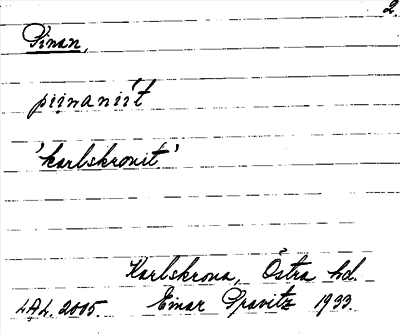 2.
Pinan,
piinaniit
'karlskronit'
Karlskrona, Östra hd.
LAL. 2005. Einar Gravitz 1933.